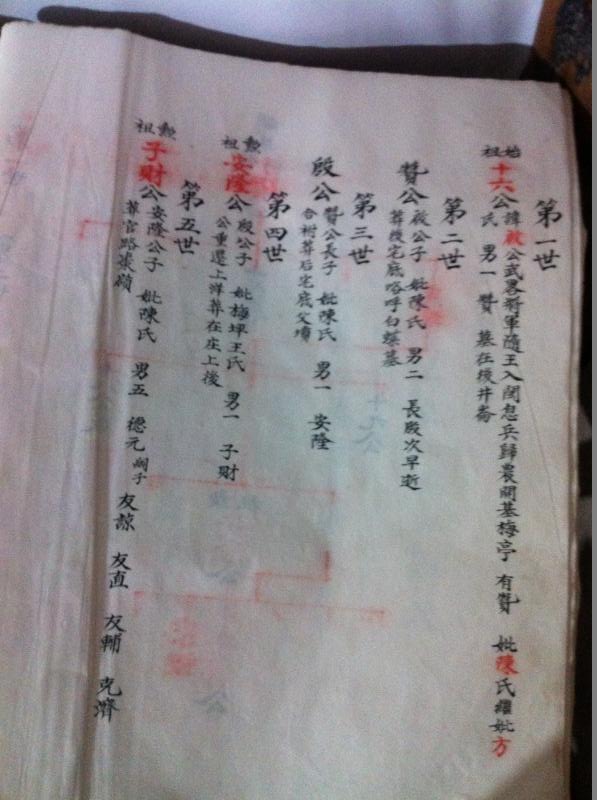 第一世
始祖十六公諱啟公武畧將軍隨王入閩息兵歸農開基梅亭 有贊 妣陳氏繼妣方
氏 男一 贊 墓在後井崙
第二世
贊公啟公子 妣陳氏 男二 長殷次早逝
葬後宅底咯呼白螺墓
第三世
殷公贊公長子 妣陳氏 男一 安隆
合祔葬后宅底父墳
第四世
勲祖安隆公殷公子 妣梅坪王氏 男一 子財
公重遷上洋葬在庄上後
第五世
勲祖子財公安隆公子 妣陳氏 男五 德元嗣子 友諒 友直 友輔 克濟
葬官路嶺